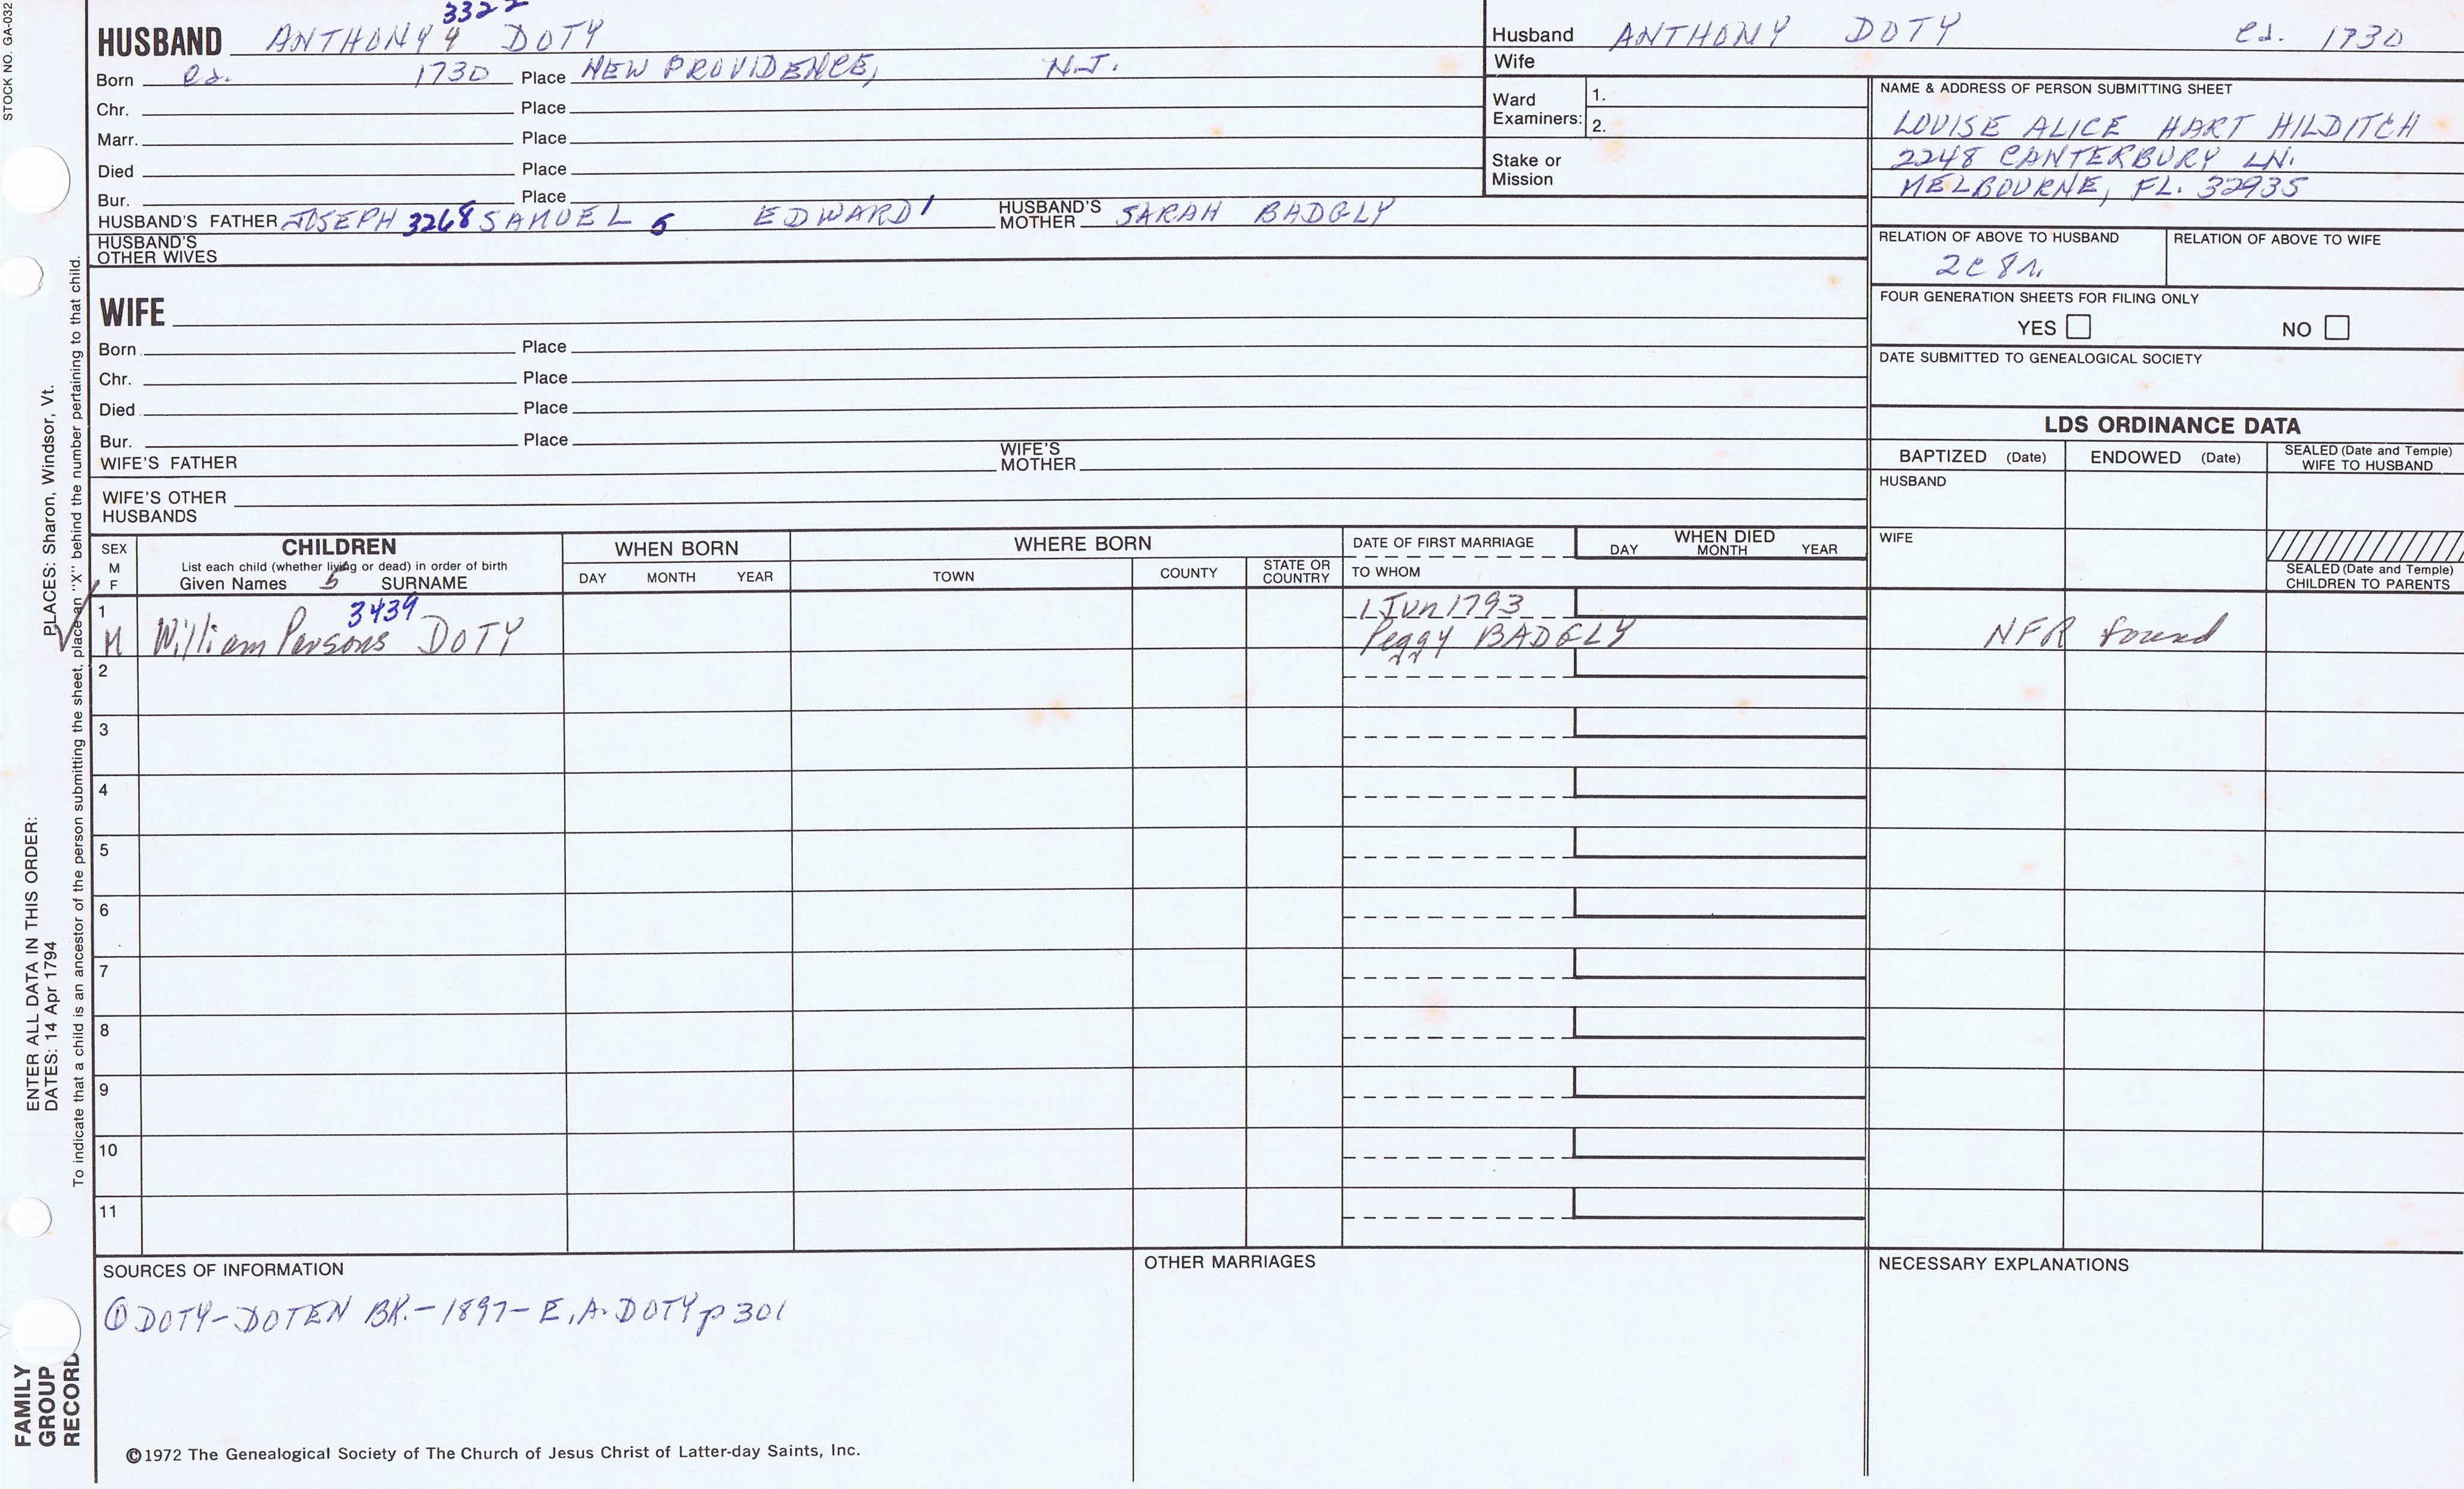 STOCK NO. GA-032
3322
HUSBAND ANTHONY 4 DOTY
Born ca. 1730 Place NEW PROVIDENCE, N.J.
Chr. Place
Marr. Place
Died Place
Bur. Place
HUSBAND'S FATHER JOSEPH 3268 SAMUEL 5 EDWARD 1 HUSBAND'S MOTHER SARAH BADGLY
HUSBAND'S OTHER WIVES
Husband ANTHONY DOTY ca. 1730
Wife
Ward Examiners: 1.
2.
Stake or Mission
NAME & ADDRESS OF PERSON SUBMITTING SHEET
LOUISE ALICE HART HILDITCH
2248 CANTERBURY LN.
MELBOURNE, FL. 32935
RELATION OF ABOVE TO HUSBAND RELATION OF ABOVE TO WIFE
2C 8r.
FOUR GENERATION SHEETS FOR FILING ONLY
YES NO
DATE SUBMITTED TO GENEALOGICAL SOCIETY
WIFE
Born Place
Chr. Place
Died Place
Bur. Place
WIFE'S FATHER WIFE'S MOTHER
WIFE'S OTHER HUSBANDS
LDS ORDINANCE DATA
BAPTIZED (Date) ENDOWED (Date) SEALED (Date and Temple) WIFE TO HUSBAND
HUSBAND
WIFE
SEALED (Date and Temple) CHILDREN TO PARENTS
SEX M F
CHILDREN
List each child (whether living or dead) in order of birth
Given Names 5 SURNAME
WHEN BORN
DAY MONTH YEAR
WHERE BORN
TOWN COUNTY STATE OR COUNTRY
DATE OF FIRST MARRIAGE
TO WHOM
WHEN DIED
DAY MONTH YEAR
1 3439 1 Jun 1793
M William Parsons DOTY Peggy BADGLY NFR found
2
3
4
5
6
7
8
9
10
11
SOURCES OF INFORMATION
① DOTY-DOTEN BK.-1897- E.A. DOTY p 301
OTHER MARRIAGES
NECESSARY EXPLANATIONS
©1972 The Genealogical Society of The Church of Jesus Christ of Latter-day Saints, Inc.
ENTER ALL DATA IN THIS ORDER:
DATES: 14 Apr 1794 PLACES: Sharon, Windsor, Vt.
To indicate that a child is an ancestor of the person submitting the sheet, place an "X" behind the number pertaining to that child.
FAMILY
GROUP
RECORD